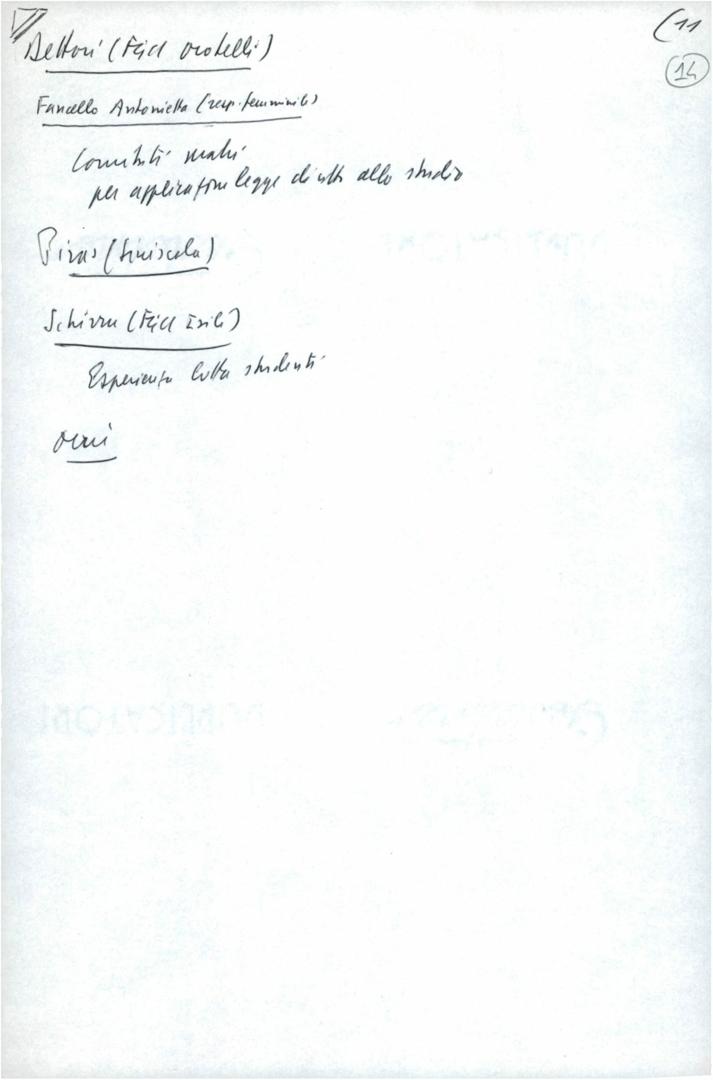 (11
14
Dettori (FGCI Orotelli)
Fancello Antonietta (resp. femminile)
Comitati
per applicazione legge diritto allo studio
Piras (Siniscola)
Schirru (FGCI Isili)
Esperienza lotta studenti